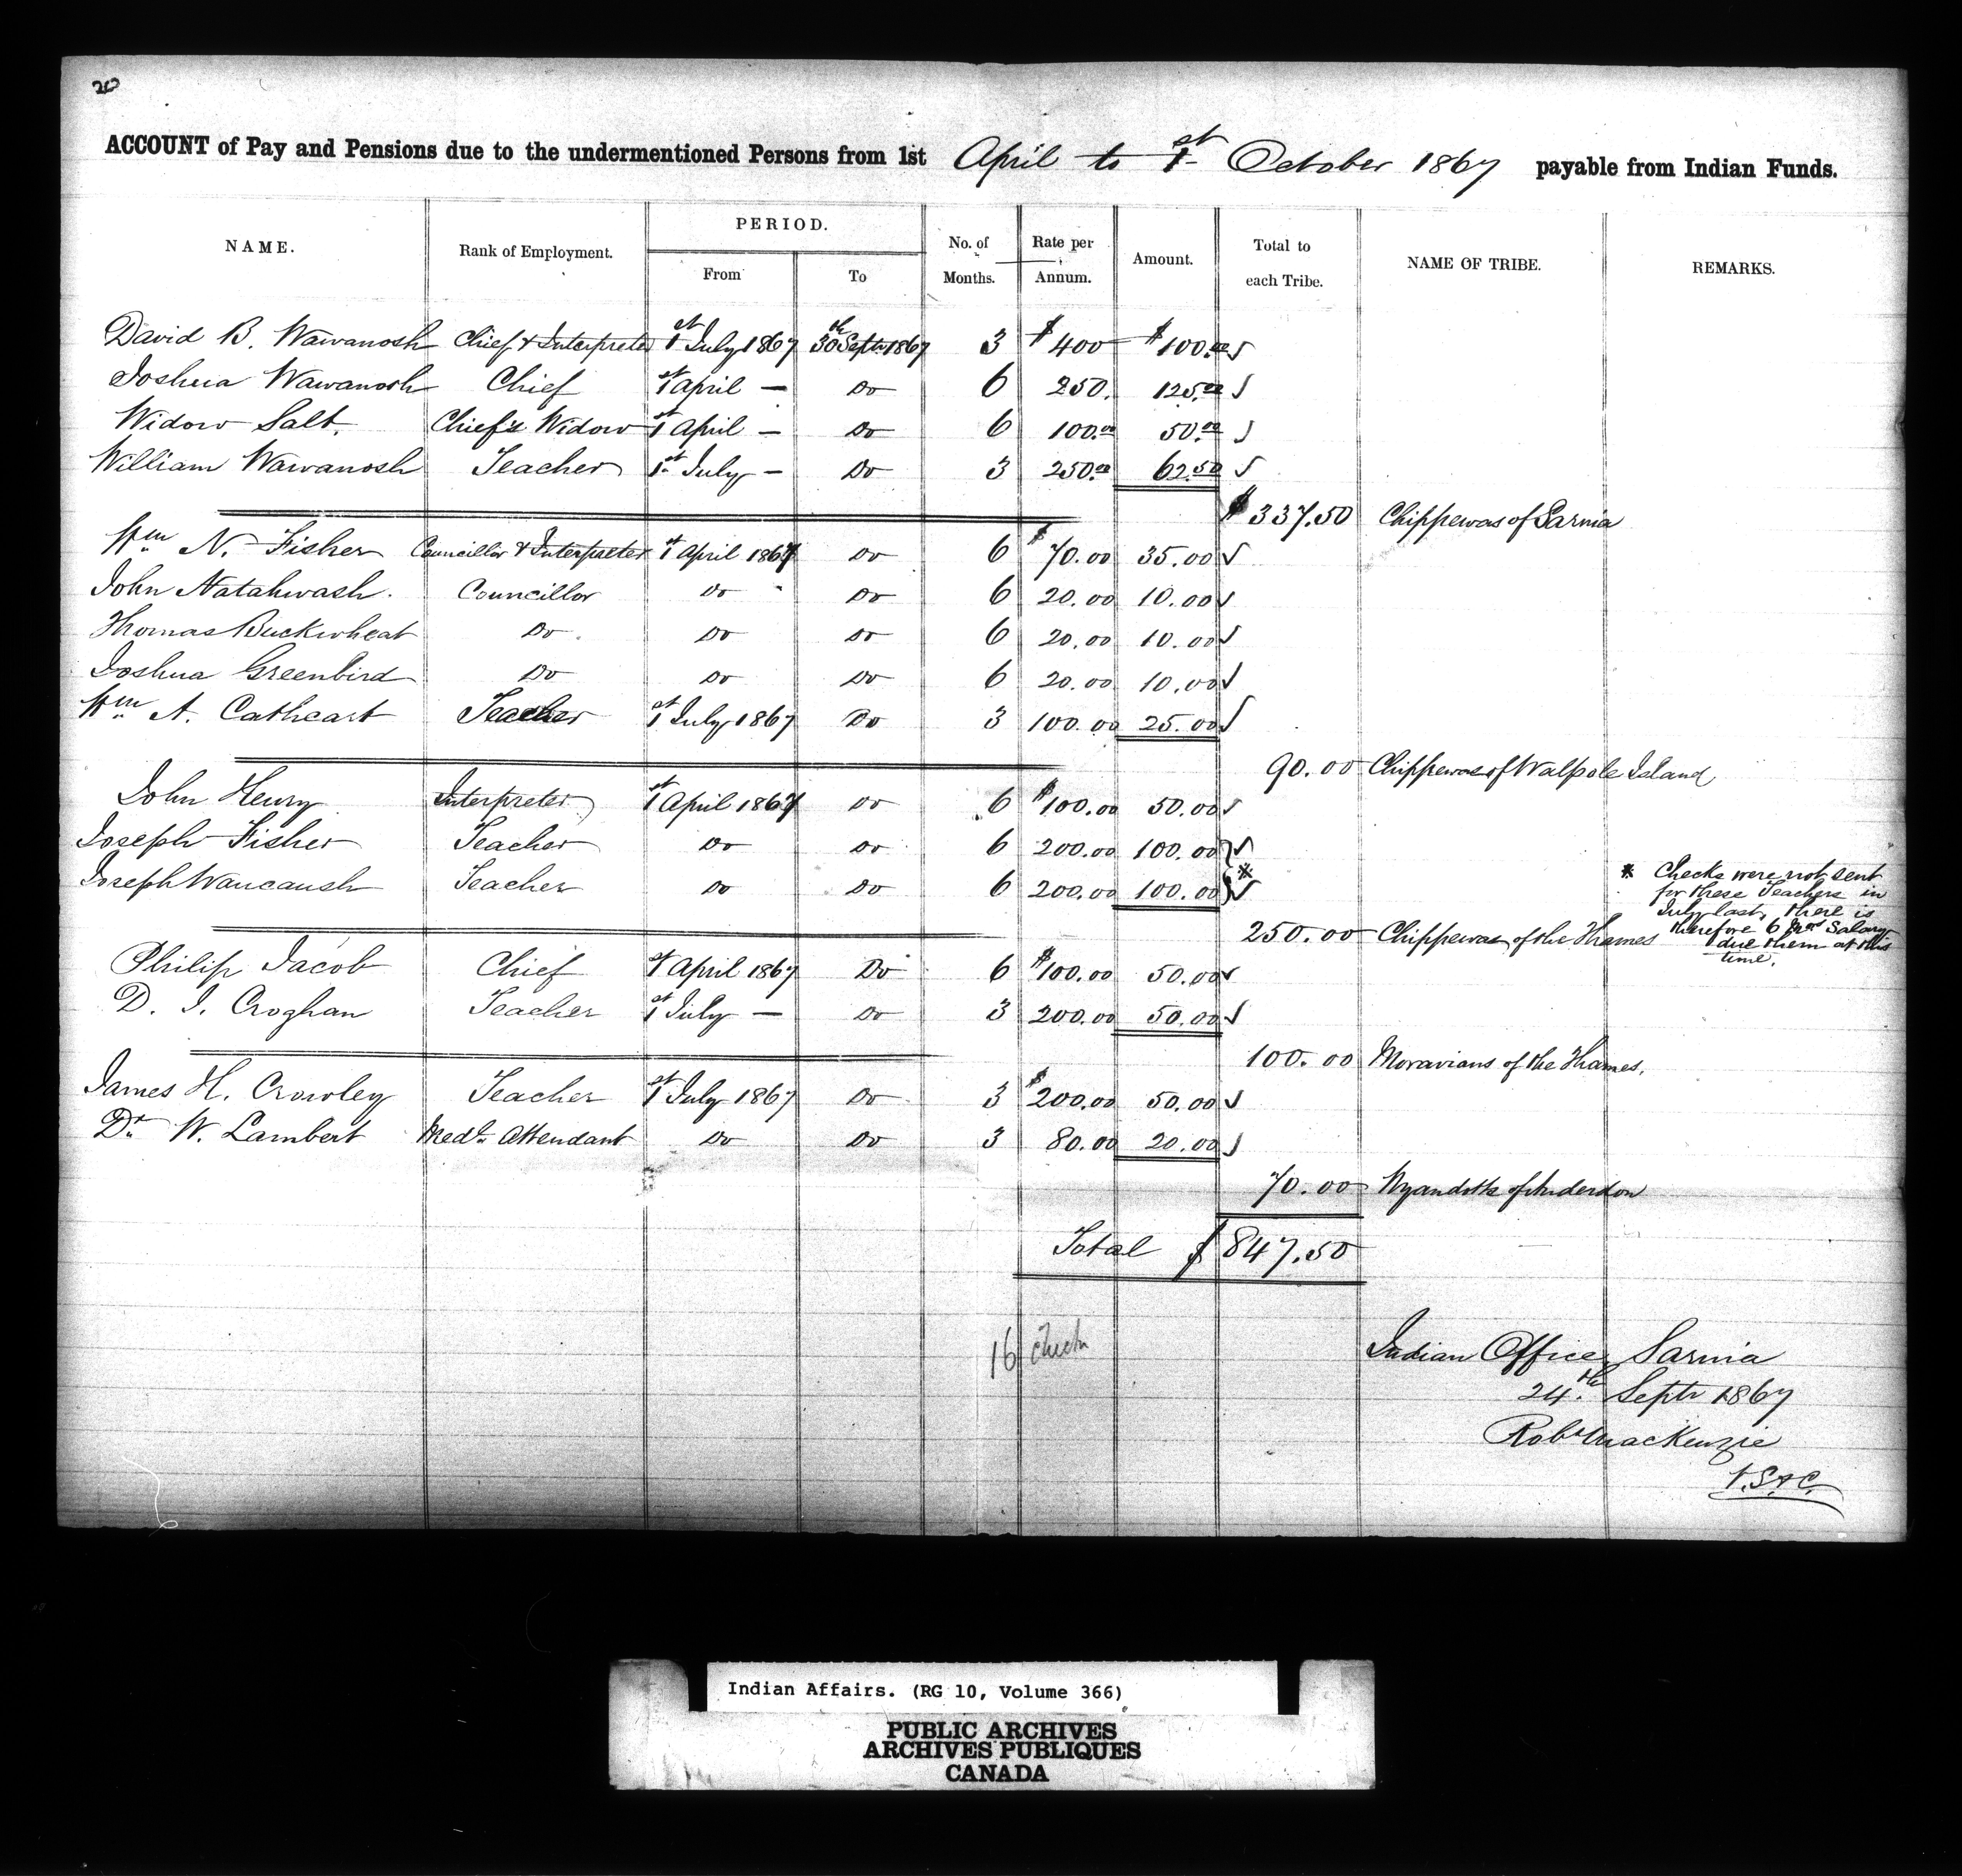 ACCOUNT of Pay and Pensions due to the undermentioned Persons from 1st April to 1st October 1867 payable from Indian Funds.
NAME. Rank of Employment. PERIOD. From To No. of Months. Rate per Annum. Amount. Total to each Tribe. NAME OF TRIBE. REMARKS.
David B. Wawanosh Chief & Interpreter 1st July 1867 30th Septr 1867 3 $400 $100.00 √
Joshua Wawanosh Chief 1st April — Do 6 250. 125.00 √
Widow Salt. Chief's Widow 1st April — Do 6 100.00 50.00 √
William Wawanosh Teacher 1st July — Do 3 250.00 62.50 √
$337.50 Chippewas of Sarnia
Wm N. Fisher Councillor & Interpreter 1st April 1867 Do 6 $70.00 35.00 √
John Natahwash. Councillor Do Do 6 20.00 10.00 √
Thomas Buckwheat Do Do Do 6 20.00 10.00 √
Joshua Greenbird Do Do Do 6 20.00 10.00 √
Wm A. Cathcart Teacher 1st July 1867 Do 3 100.00 25.00 √
90.00 Chippewas of Walpole Island
John Henry Interpreter 1st April 1867 Do 6 $100.00 50.00 √
Joseph Fisher Teacher Do Do 6 200.00 100.00 √
Joseph Waucaush Teacher Do Do 6 200.00 100.00 √ *
* Checks were not sent
for these Teachers in
July last, there is
therefore 6 mos Salary
due them at this
time.
250.00 Chippewas of the Thames
Philip Jacob Chief 1st April 1867 Do 6 $100.00 50.00 √
D. J. Croghan Teacher 1st July — Do 3 200.00 50.00 √
100.00 Moravians of the Thames.
James H. Crowley Teacher 1st July 1867 Do 3 $200.00 50.00 √
Dr W. Lambert Medl. Attendant Do Do 3 80.00 20.00 √
70.00 Wyandotts of Anderdon
Total $847.50
16
Indian Office, Sarnia
24th Septr 1867
Robt MacKenzie
Indian Affairs. (RG 10, Volume 366)
PUBLIC ARCHIVES
ARCHIVES PUBLIQUES
CANADA